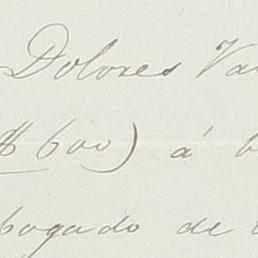 Dolores Va
$ 600) á b
bogado de